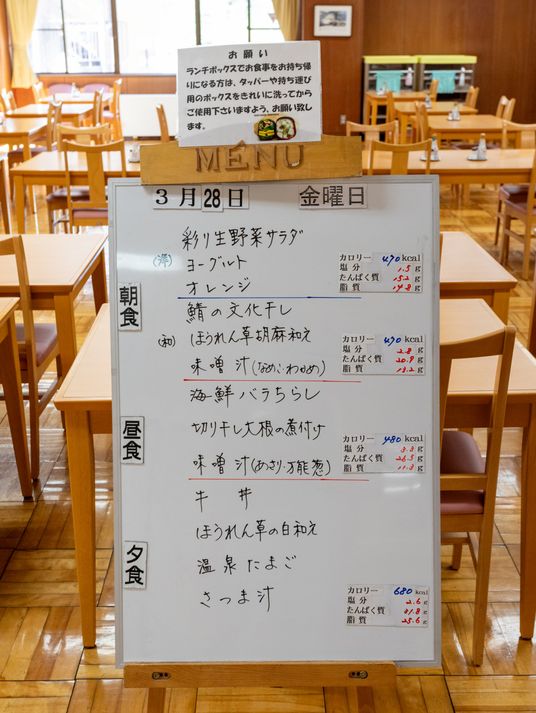 お 願 い
ランチボックスでお食事をお持ち帰
りになる方は、タッパーや持ち運び
用のボックスをきれいに洗ってから
ご使用下さいますよう、お願い致し
ます。
MENU
3月28日 金曜日
朝食
彩り生野菜サラダ
(洋) ヨーグルト
オレンジ
カロリー 470 kcal
塩 分 1.5 g
たんぱく質 15.2 g
脂 質 19.8 g
鯖の文化干し
(和) ほうれん草胡麻和え
味噌汁(なめこ・わかめ)
カロリー 490 kcal
塩 分 2.8 g
たんぱく質 20.9 g
脂 質 13.2 g
昼食
海鮮バラちらし
切り干し大根の煮付け
味噌汁(あさり・万能葱)
カロリー 480 kcal
塩 分 3.3 g
たんぱく質 26.5 g
脂 質 11.3 g
夕食
牛 丼
ほうれん草の白和え
温泉たまご
さつま汁
カロリー 680 kcal
塩 分 2.6 g
たんぱく質 31.8 g
脂 質 25.6 g